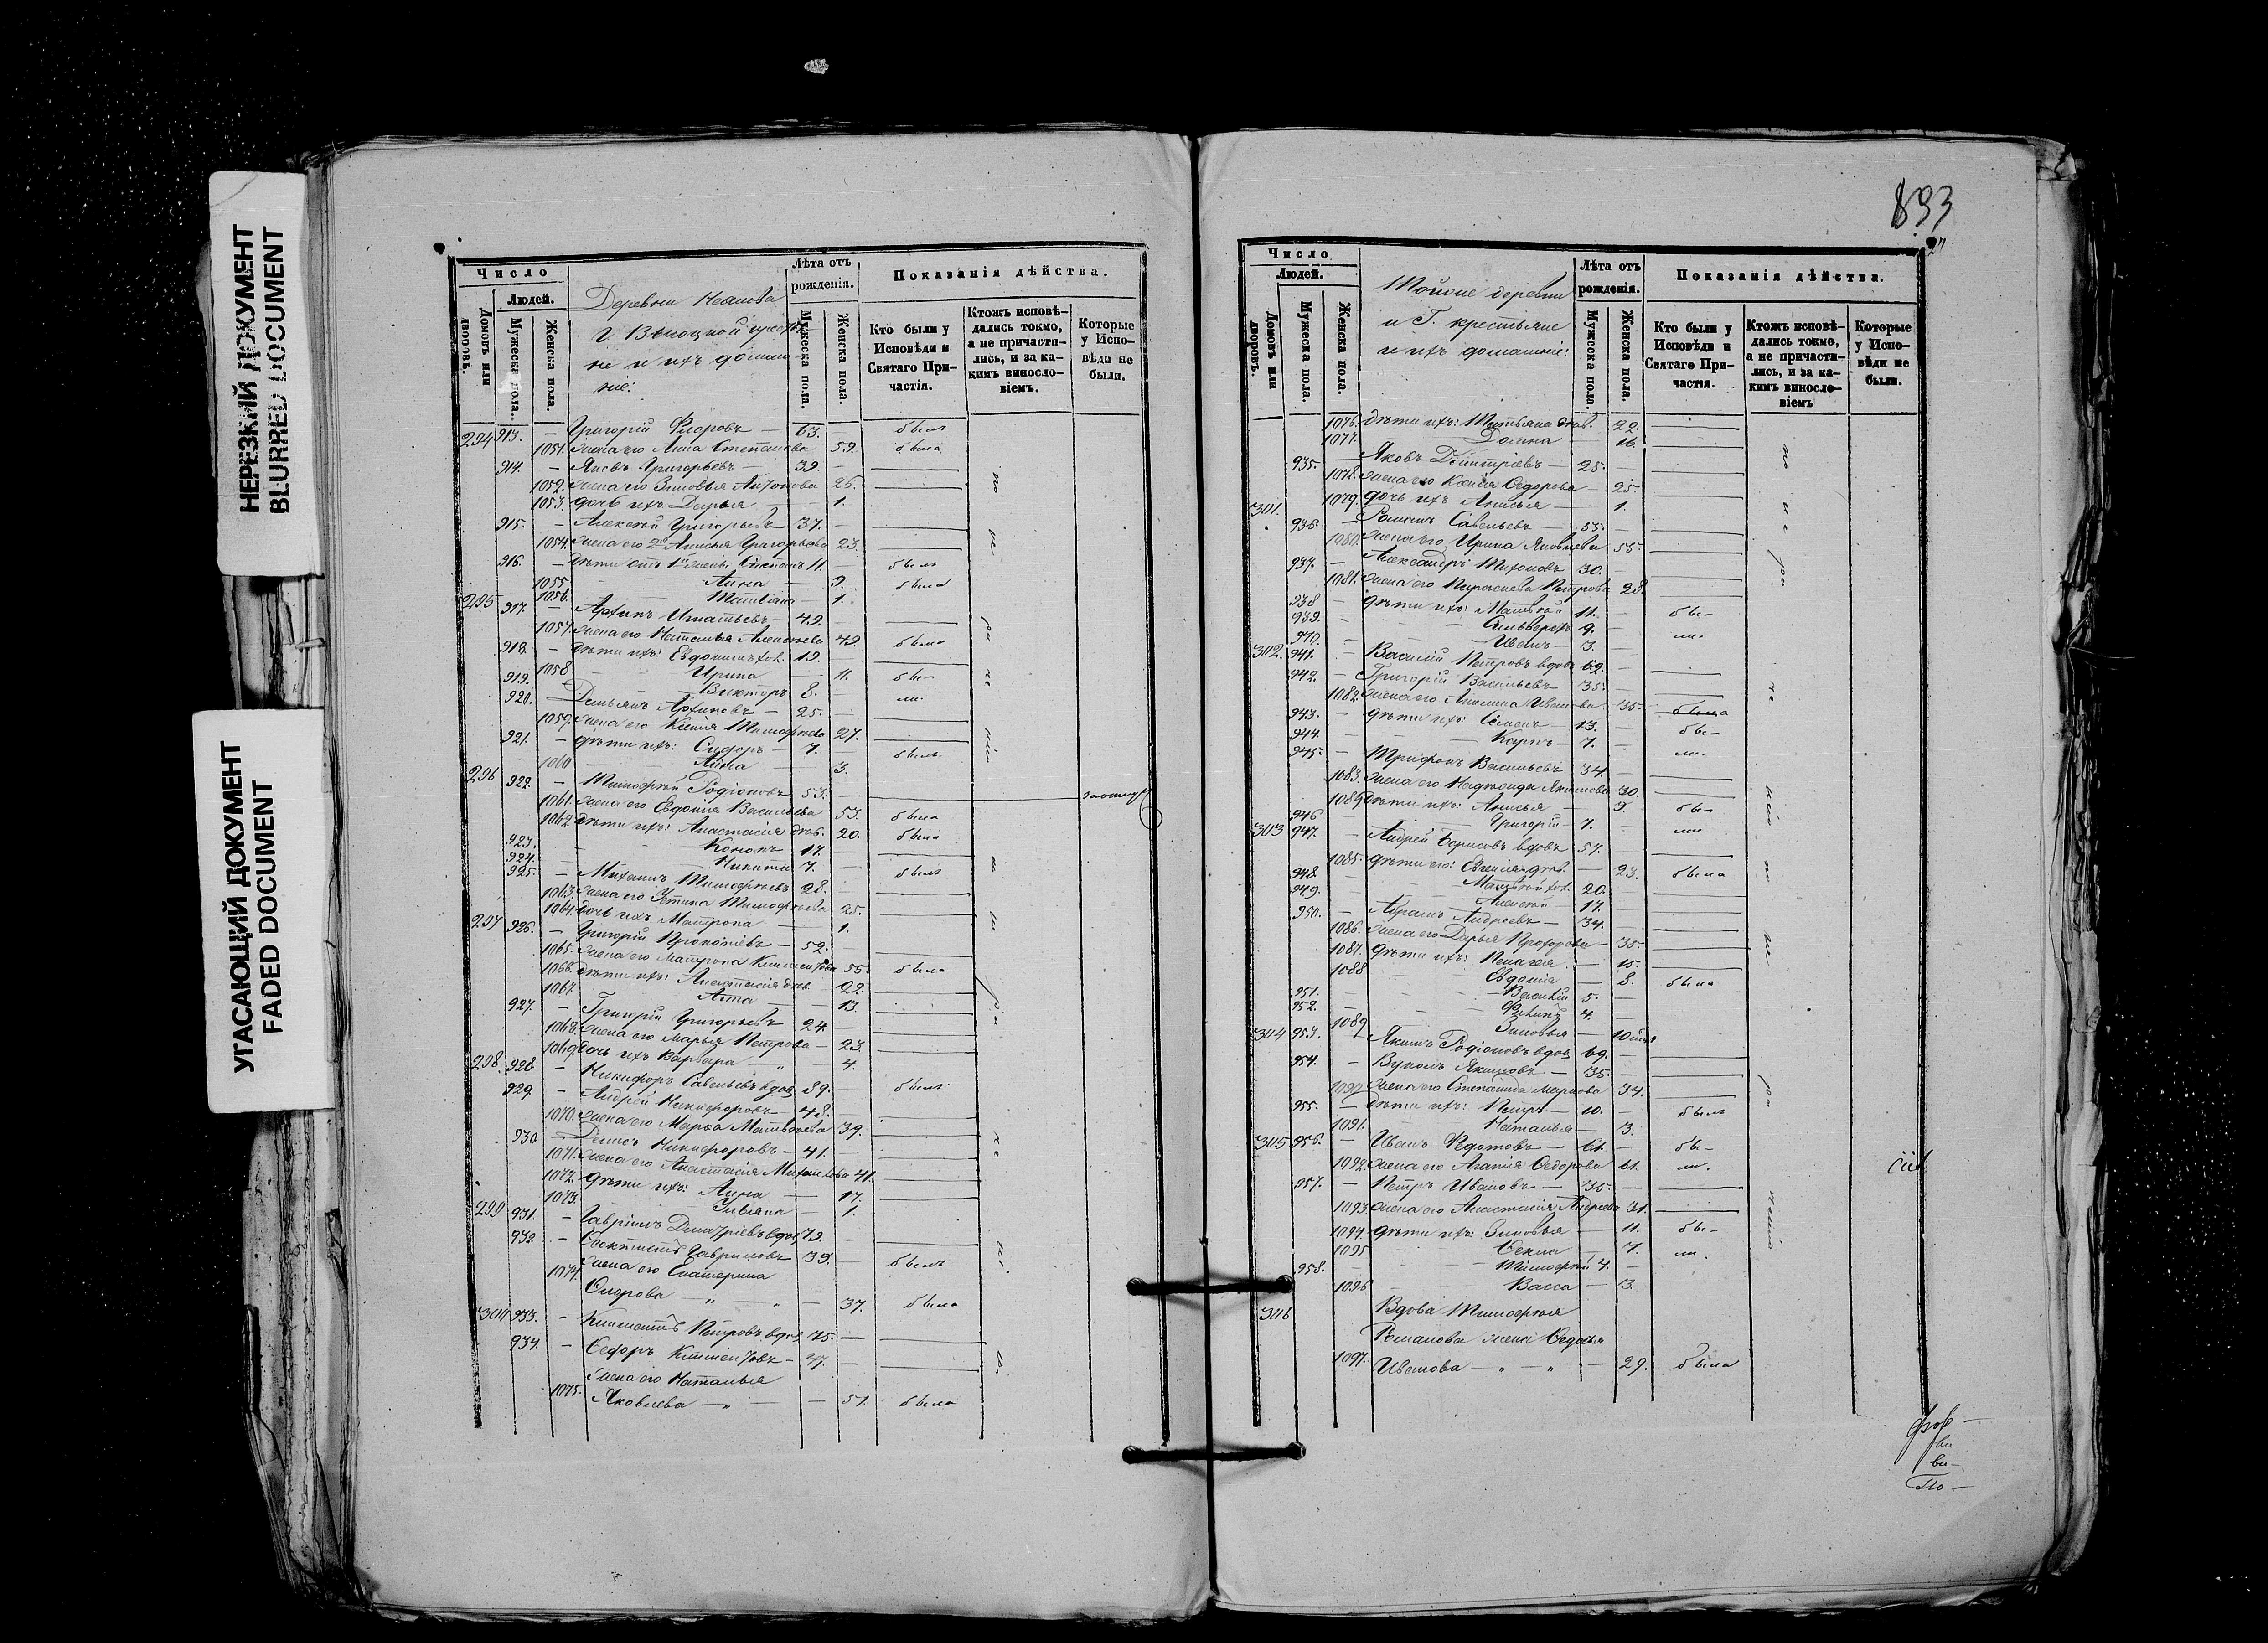 НЕРЕЗКИЙ ДОКУМЕНТ
BLURRED DOCUMENT
УГАСАЮЩИЙ ДОКУМЕНТ
FADED DOCUMENT
Число
Людей.
Домовъ или дворовъ.
Мужеска пола.
Женска пола.
Деревни
и ихъ домаш
ніе:
Лѣта отъ рожденія.
Мужеска пола.
Женска пола.
Показанія дѣйства.
Кто были у Исповѣди и Святаго Причастія.
Ктожъ исповѣдались токмо, а не причастились, и за какимъ винословіемъ.
Которые у Исповѣди не были.
294 913. — Григорій Ѳедоровъ — 63. — былъ
1051. жена его Анна Степанова 59. была
914. — Яковъ Григорьевъ — 39. —
1052. жена его Зиновья Антонова 26.
1053. дочь ихъ Дарья — 1.
915. — Алексѣй Григорьевъ 37. —
1054. жена его 2я Анисья Григорьева 23.
916. — дѣти отъ 1й жены: Степанъ 11. — былъ
1055. Анна — 9. была
1056. Татьяна — 1.
295 917. — Архипъ Игнатьевъ — 49. —
1057. жена его Наталья Алексѣева 49. была
918. — дѣти ихъ: Евдокимъ хол. 19. —
1058 Ирина — 11. бы-
919. Викторъ 8. — ли.
920. — Демьянъ Архиповъ — 25. —
1059. жена его Ксенія Тимофѣева 27.
921. — дѣти ихъ: Сидоръ — 7. былъ
1060 Анна — 3.
296 922. — Тимофѣй Родіоновъ 53. —
1061. жена его Евдокія Васильева 53. была
1062 дѣти ихъ: Анастасія дѣв. 20. была
923. Кононъ 17.
924. Никита 7. — былъ
925. — Михаилъ Тимофѣевъ 28. —
1063. жена его Устина Тимофѣева 25.
1064. дочь ихъ Матрона — 1.
297 926. — Григорій Прокопіевъ — 52. —
1065. жена его Матрона Климентова 55. была
1066. дѣти ихъ: Анастасія дѣв. 22.
1067. Анна — 13.
927. — Григорій Григорьевъ 24 —
1068. жена его Марья Петрова — 23.
1069. дочь ихъ Варвара — 4.
298. 928 — Никифоръ Савельевъ вдов. 89. — былъ
929. — Андрей Никифоровъ — 48. —
1070. жена его Марѳа Матвѣева 39.
930 — Денисъ Никифоровъ — 41. —
1071. жена его Анастасія Михайлова 41.
1072. дѣти ихъ: Анна — 17.
1073. Ульяна — 1.
299 931. — Гавріилъ Дмитріевъ вдов. 79. —
932. — Ѳеоктистъ Гавриловъ 39. — былъ
жена его Екатерина
1074. Сидорова — 37. была
300 933. — Климентъ Петровъ вдов. 75. —
934. — Ѳедоръ Климентовъ — 47. —
жена его Наталья
1075. Яковлева — — 51. была
893
Число
Людей.
Домовъ или дворовъ.
Мужеска пола.
Женска пола.
Тойже деревни
и Г. крестьяне
и ихъ домашніе:
Лѣта отъ рожденія.
Мужеска пола.
Женска пола.
Показанія дѣйства.
Кто были у Исповѣди и Святаго Причастія.
Ктожъ исповѣдались токмо, а не причастились, и за какимъ винословіемъ
Которые у Исповѣди не были.
1076. дѣти ихъ: Татьяна дѣв. 22.
1077. Домна — 16.
935. — Яковъ Дмитріевъ — 25. —
1078. жена его Ксенія Ѳедорова — 25.
1079. дочь ихъ Анисья — 1.
301. 936. — Савельевъ — 53. —
1080. жена его Ирина Яковлева 55.
937. — Александръ Тихоновъ 30. —
1081. жена его Параскева Петрова 28.
938 — дѣти ихъ: Матвѣй 11. — бы-
939. Сильверстъ 9. — ли.
940. Иванъ — 3. —
302. 941. — Василій Петровъ вдовъ 62. —
942. — Григорій Васильевъ 35. —
1082. жена его Акилина Иванова 35. была
943. — дѣти ихъ: Семенъ — 13. бы-
944. Карпъ — 7. — ли.
945. — Трифонъ Васильевъ 34. —
1083. жена его Надежда Якимова 30.
1084. дѣти ихъ: Анисья — 9. бы-
946 Григорій — 7. — ли
303 947. — Андрей Борисовъ вдовъ 57. —
1085. дѣти его: Евгенія дѣв. — 23. была
948. Матвѣй хол. 20.
949. Алексѣй — 17.
950. — Абрамъ Андреевъ — 34.
1086. жена его Дарья Прохорова — 35.
1087. дѣти ихъ: Пелагея — 15.
1088 Евдокія — 8. была
951. — Василій 5. —
952. — Филипъ 4. —
1089 Зиновья —
304 953. — Якимъ Родіоновъ вдов. 69. —
954. — Вуколъ Якимовъ — 35. —
1090. жена его Степанида Маркова 34.
955. — дѣти ихъ: Петръ — 10. былъ
1091. Наталья — 3.
305 956. — Иванъ Ѳедотовъ — 61. — бы-
1092. жена его Агапія Ѳедорова 61. ли.
957. — Петръ Ивановъ — 35. —
1093. жена его Анастасія Андреева 31.
1094. дѣти ихъ: Зиновья — 11. бы-
1095 Ѳекла — 7. ли.
958. — Тимофѣй 4. —
1096 Васса — 3.
306 Вдова Тимофея
Романова жена Ѳедосья
1097. Иванова — — 29. была